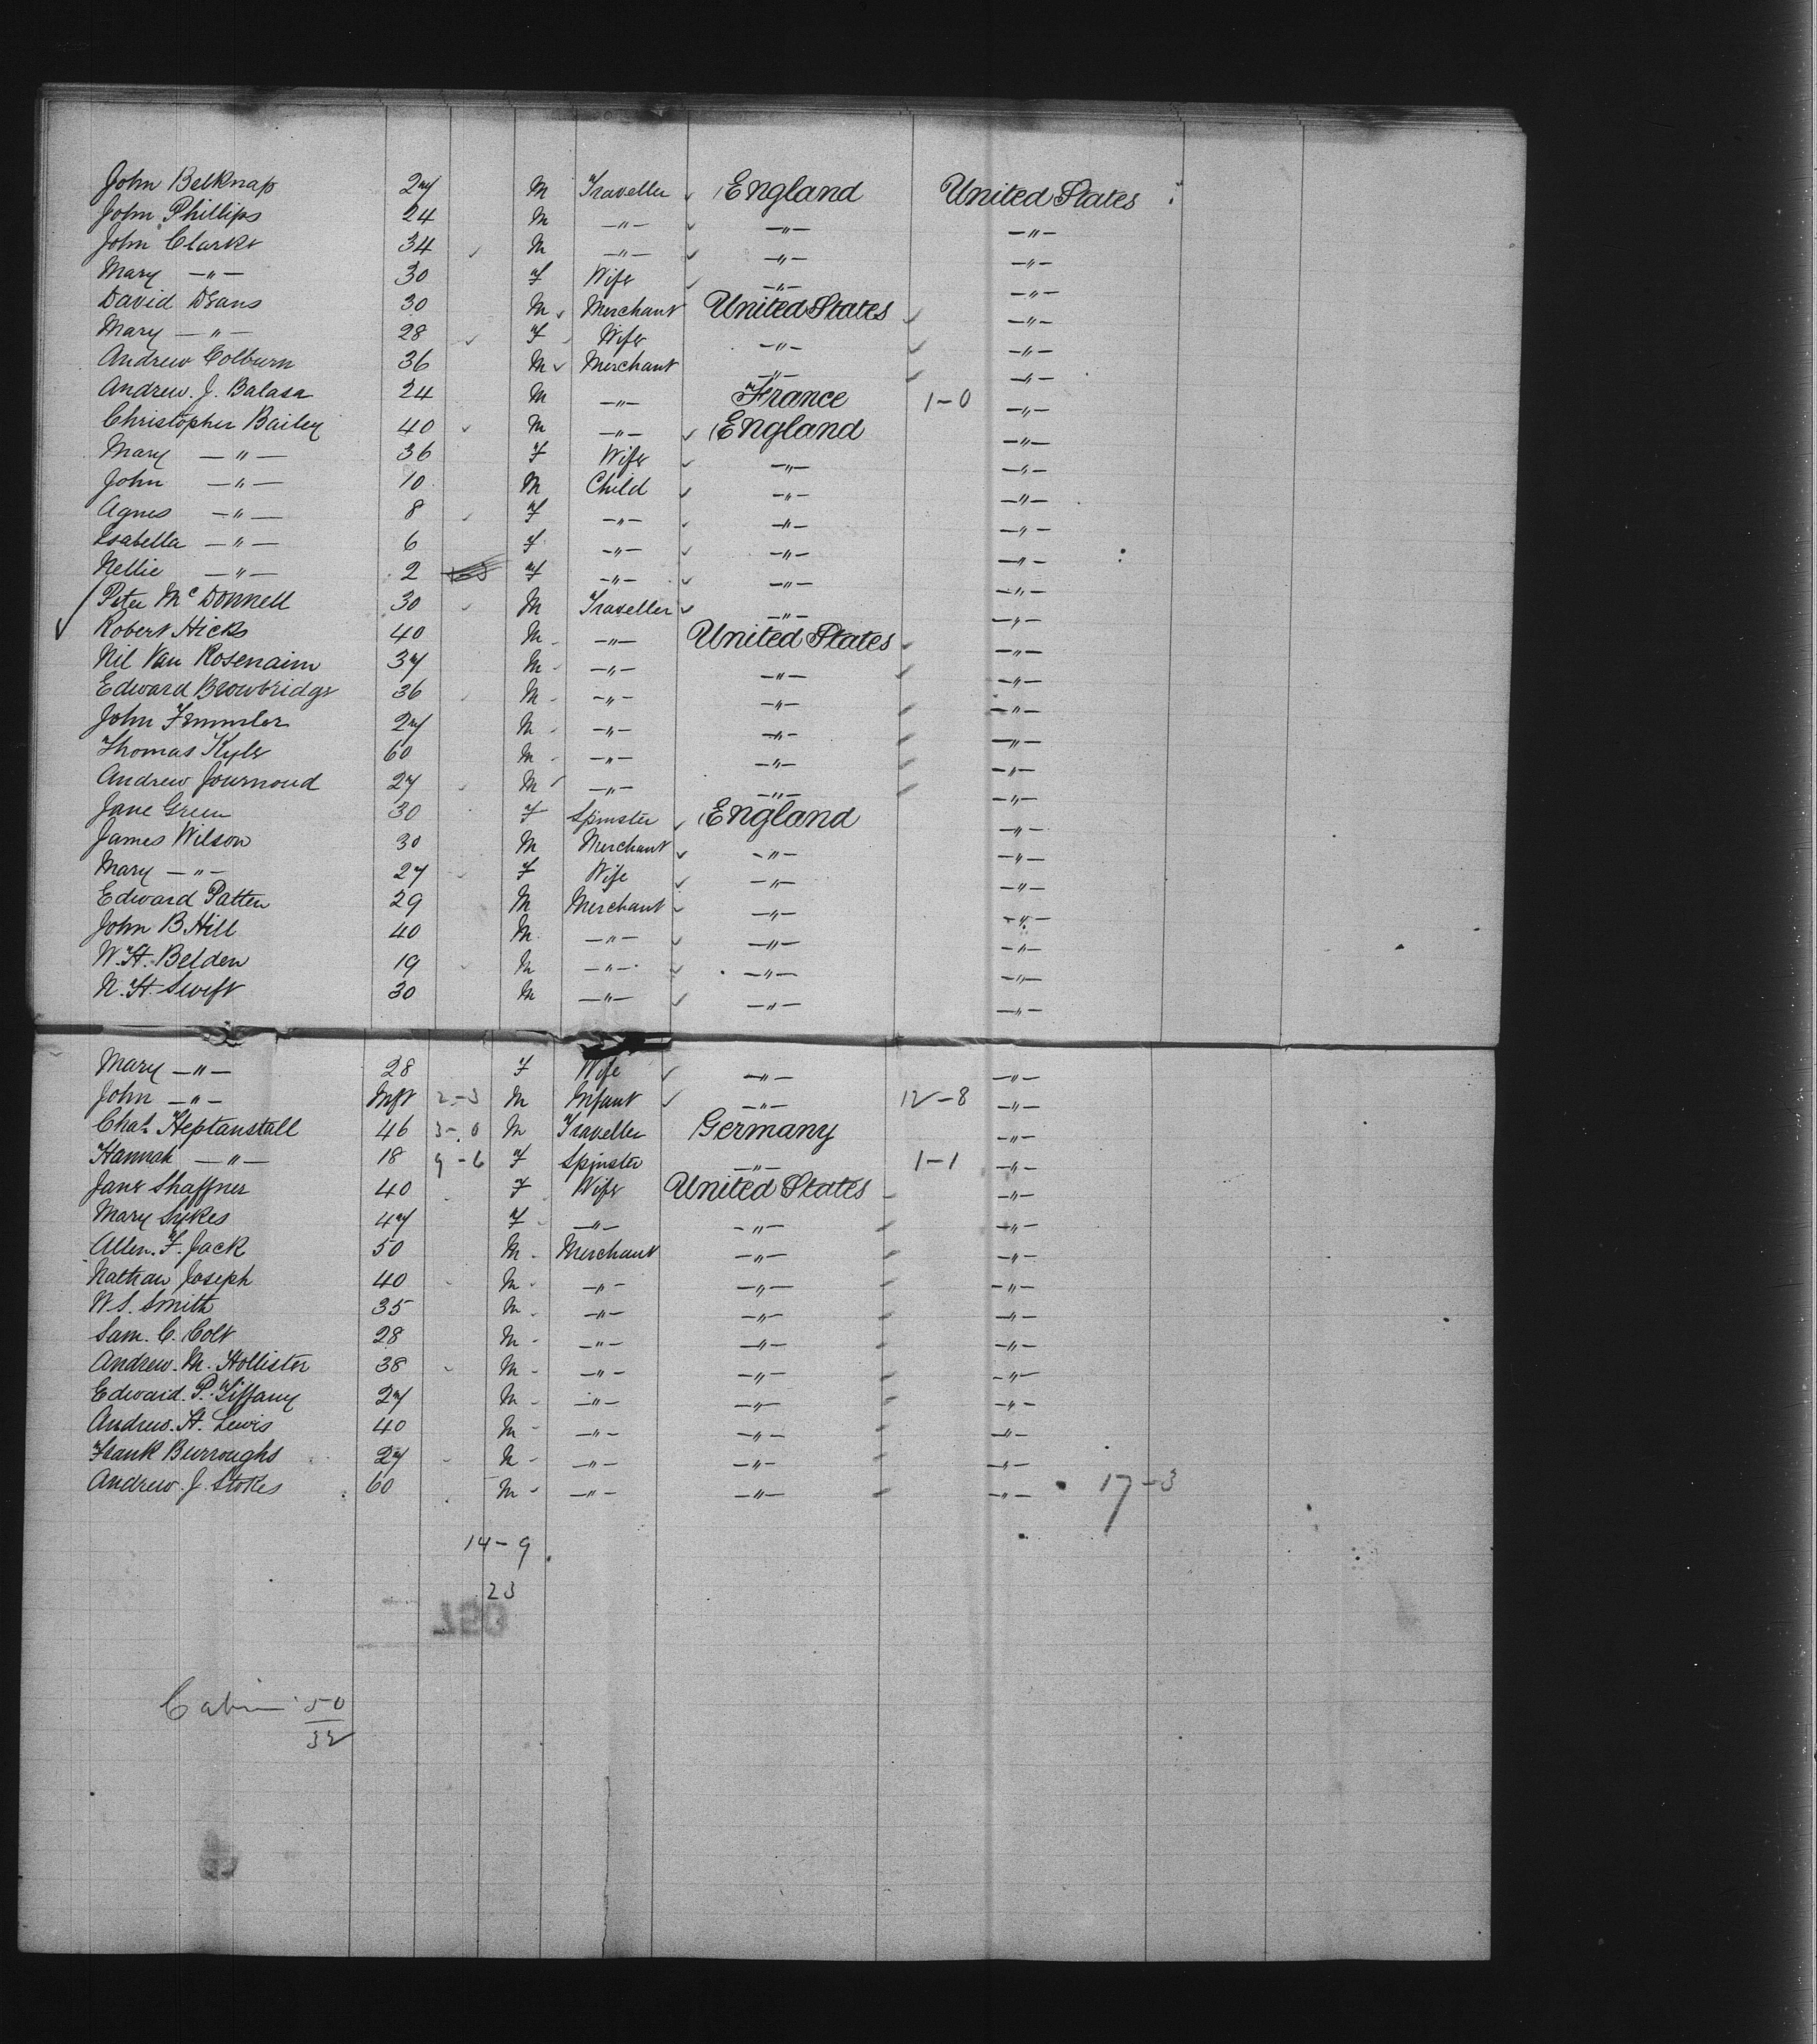 John Belknap 27 M Traveller England United States
John Phillips 24 M —"— —"— —"—
John Clarke 34 M —"— —"— —"—
Mary —"— 30 F Wife —"— —"—
David Deans 30 M Merchant United States —"—
Mary —"— 28 F Wife —"— —"—
Andrew Colburn 36 M Merchant —"— —"—
Andrew. J. Balasa 24 M —"— France 1-0 —"—
Christopher Bailey 40 M —"— England —"—
Mary —"— 36 F Wife —"— —"—
John —"— 10 M Child —"— —"—
Agnes —"— 8 F —"— —"— —"—
Isabella —"— 6 F —"— —"— —"—
Nellie —"— 2 F —"— —"— —"—
Peter McDonnell 30 M Traveller —"— —"—
Robert Hicks 40 M —"— United States —"—
Nil Van Rosenaim 37 M —"— —"— —"—
Edward Browbridge 36 M —"— —"— —"—
John Femmler 27 M —"— —"— —"—
Thomas Kyle 60 M —"— —"— —"—
Andrew Journoud 27 M —"— —"— —"—
Jane Green 30 F Spinster England —"—
James Wilson 30 M Merchant —"— —"—
Mary —"— 27 F Wife —"— —"—
Edward Patten 29 M Merchant —"— —"—
John B Hill 40 M —"— —"— —"—
W. H. Belden 19 M —"— —"— —"—
N. H. Swift 30 M —"— —"— —"—
Mary —"— 28 F Wife —"— —"—
John —"— Inft 2-3 M Infant —"— 12-8 —"—
Chas. Heptanstall 46 3-0 M Traveller Germany —"—
Hannah —"— 18 9-6 F Spinster —"— 1-1 —"—
Jane Shaffner 40 F Wife United States —"—
Mary Sykes 47 F —"— —"— —"—
Allen. F. Jack 50 M Merchant —"— —"—
Nathan Joseph 40 M —"— —"— —"—
W S. Smith 35 M —"— —"— —"—
Sam. C. Colt 28 M —"— —"— —"—
Andrew. M. Hollister 38 M —"— —"— —"—
Edward. P. Tiffany 27 M —"— —"— —"—
Andrew. H. Lewis 40 M —"— —"— —"—
Frank Burroughs 27 M —"— —"— —"—
Andrew. J. Stokes 60 M —"— —"— —"— 17-3
14-9
23
Cabin 50
32